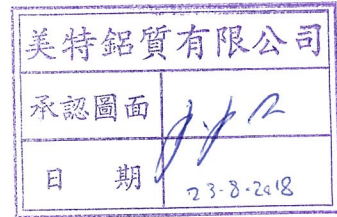 美特鋁質有限公司
承認圖面
日期 23-8-2018